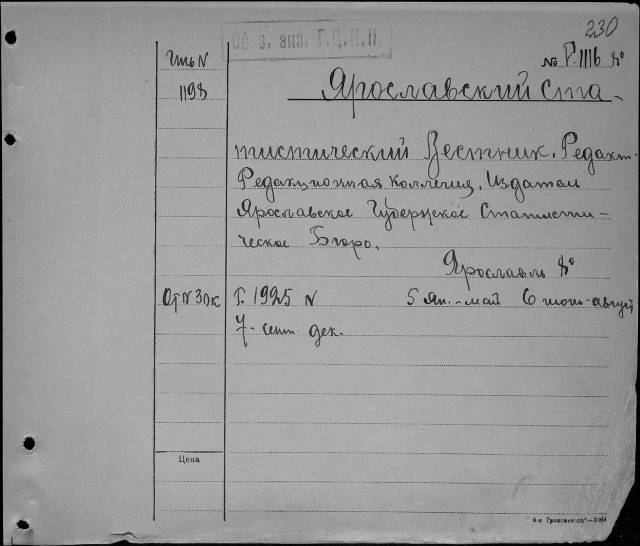 230
Обяз. экз. Г.Ц.К.П.
Чит N № Р. 1116 8º
1198 Ярославский Ста-
тистический Вестник. Редакт.
Редакционная коллегия. Издатель
Ярославское Губернское Статисти-
ческое Бюро.
Ярославль 8º
От N 30к Г. 1925 N 5 Ян.-май 6 июнь-август
7- сент. дек.
Цена